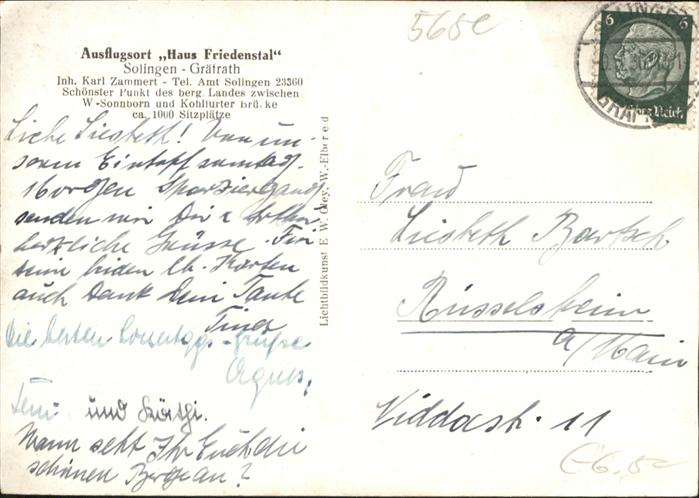 565e
Ausflugsort „Haus Friedenstal"
Solingen - Gräfrath
Inh. Karl Zammert - Tel. Amt Solingen 23360
Schönster Punkt des berg. Landes zwischen
W-Sonnborn und Kohlfurter Brücke
ca. 1000 Sitzplätze
Liebe Liesbeth! Von un-
serm Eintopfsonntag-
Spaziergang
senden wir Dir
herzliche Grüsse. Für
beiden lb. Karten
auch Dank Deine Tante
Tina
Die besten Sonntags-Grüße
Agnes,
und Käthi.
Wann seht Ihr Euch die
schönen Berge an?
Lichtbildkunst E. W. Oley, W.-Elberfeld
6 6
Deutsches Reich
Frau
Liesbeth Bartsch
Rüsselsheim
a/Main
Viddastr. 11